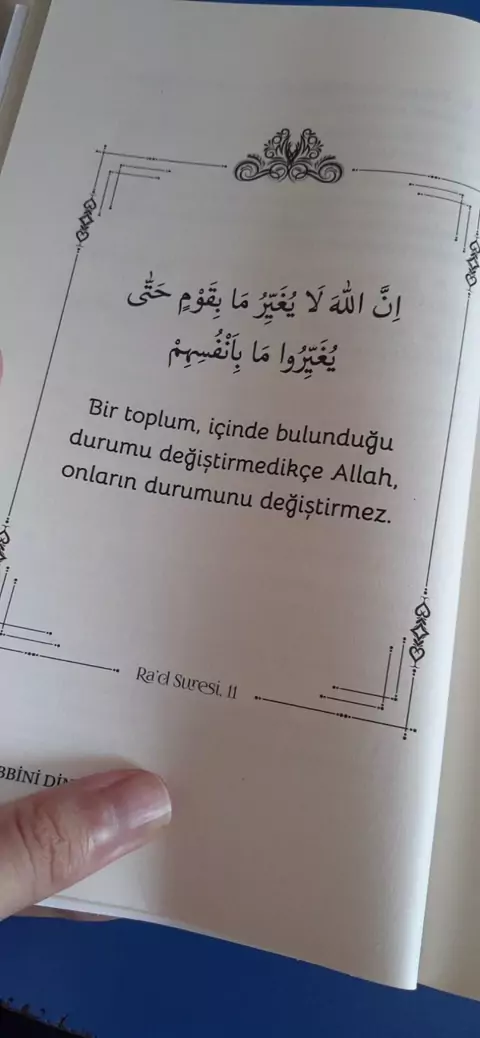 اِنَّ اللّٰهَ لَا يُغَيِّرُ مَا بِقَوْمٍ حَتّٰى
يُغَيِّرُوا مَا بِاَنْفُسِهِمْ
Bir toplum, içinde bulunduğu
durumu değiştirmedikçe Allah,
onların durumunu değiştirmez.
Ra'd Suresi, 11